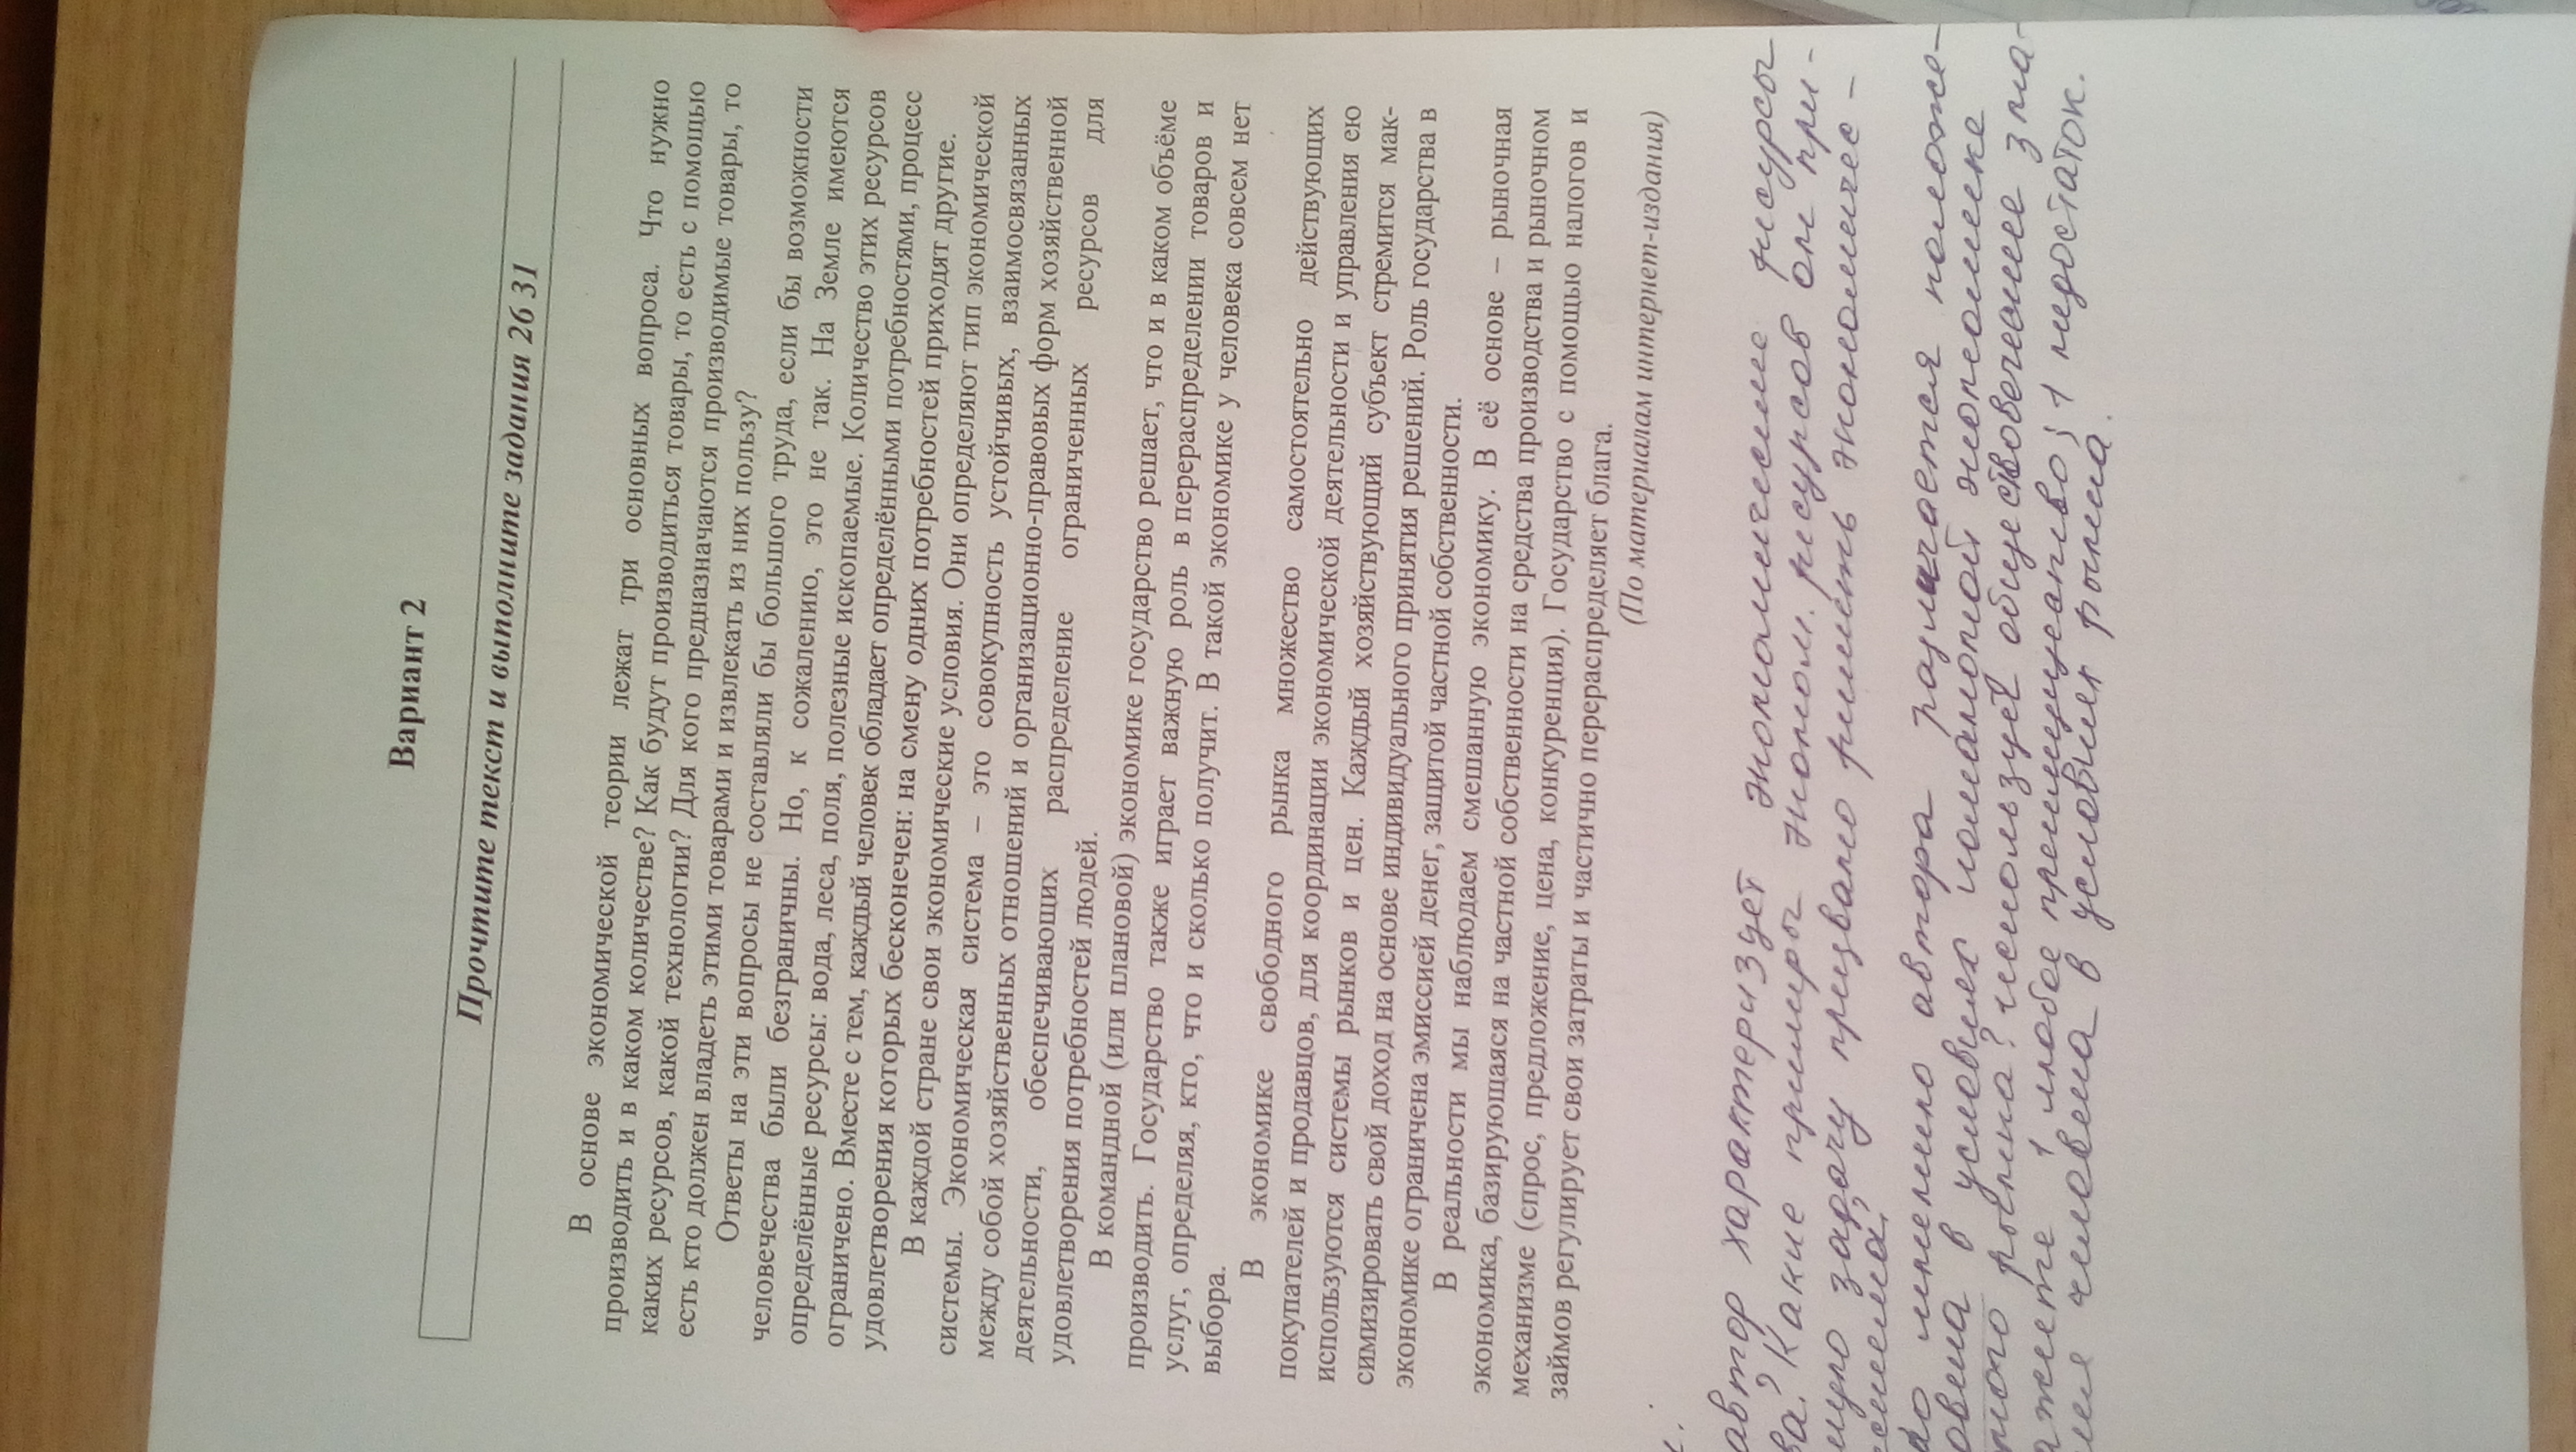 Вариант 2
Прочтите текст и выполните задания 26 31
В основе экономической теории лежат три основных вопроса. Что нужно
производить и в каком количестве? Как будут производиться товары, то есть с помощью
каких ресурсов, какой технологии? Для кого предназначаются производимые товары, то
есть кто должен владеть этими товарами и извлекать из них пользу?
Ответы на эти вопросы не составляли бы большого труда, если бы возможности
человечества были безграничны. Но, к сожалению, это не так. На Земле имеются
определённые ресурсы: вода, леса, поля, полезные ископаемые. Количество этих ресурсов
ограничено. Вместе с тем, каждый человек обладает определёнными потребностями, процесс
удовлетворения которых бесконечен: на смену одних потребностей приходят другие.
В каждой стране свои экономические условия. Они определяют тип экономической
системы. Экономическая система – это совокупность устойчивых, взаимосвязанных
между собой хозяйственных отношений и организационно-правовых форм хозяйственной
деятельности, обеспечивающих распределение ограниченных ресурсов для
удовлетворения потребностей людей.
В командной (или плановой) экономике государство решает, что и в каком объёме
производить. Государство также играет важную роль в перераспределении товаров и
услуг, определяя, кто, что и сколько получит. В такой экономике у человека совсем нет
выбора.
В экономике свободного рынка множество самостоятельно действующих
покупателей и продавцов, для координации экономической деятельности и управления ею
используются системы рынков и цен. Каждый хозяйствующий субъект стремится мак-
симизировать свой доход на основе индивидуального принятия решений. Роль государства в
экономике ограничена эмиссией денег, защитой частной собственности.
В реальности мы наблюдаем смешанную экономику. В её основе – рыночная
экономика, базирующаяся на частной собственности на средства производства и рыночном
механизме (спрос, предложение, цена, конкуренция). Государство с помощью налогов и
займов регулирует свои затраты и частично перераспределяет блага.
(По материалам интернет-издания)
автор характеризует экономические ресурсы
ва? Какие примеры эконом. ресурсов он при-
задачу призвано решить экономичес-
мнению автора различается положе-
овека в условиях командной экономике
ного рынка? используя обществоведческие зна-
1 любое преимущество, 1 недостаток.
человека в условиях рынка.